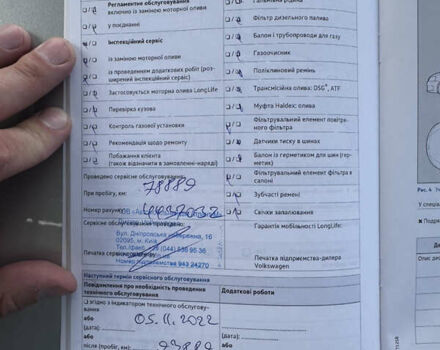 Регламентне обслуговування
включно із заміною моторної оливи
у поєднанні
Інспекційний сервіс
із заміною моторної оливи
із проведенням додаткових робіт (роз-
ширений інспекційний сервіс)
Застосовується моторна олива LongLife
Перевірка кузова
Контроль газової установки
Рекомендація щодо ремонту
Побажання клієнта
(також відзначити в замовленні-наряді)
Гальмівна рідина
Фільтр дизельного палива
Балон і трубопроводи для газу
Газоочисник
Полікліновий ремінь
Трансмісійна олива: DSG®, ATF
Муфта Haldex: олива
Фільтрувальний елемент повітря-
ного фільтра
Датчики тиску в шинах
Балон із герметиком для шин (гер-
метик)
Фільтрувальний елемент фільтра в
салоні
Зубчасті ремені
Свічки запалювання
Гарантія мобільності LongLife:
Проведено сервісне обслуговування
При пробігу, км: 78889
Номер рахунку
Сервісне обслуговування
Вул. Дніпровська набережна, 16
02095, м. Київ
(044) 536 96 36
943 24270
Печатка сервісного
Печатка підприємства-дилера
Volkswagen
Наступний термін сервісного обслуговування
Повідомлення про необхідність проведення
технічного обслуговування
Додаткові роботи
згідно з індикатором технічного обслугову-
вання
або 05.11.2022
(дата):
або
після (пробіг, км): 93889
(дата):
або